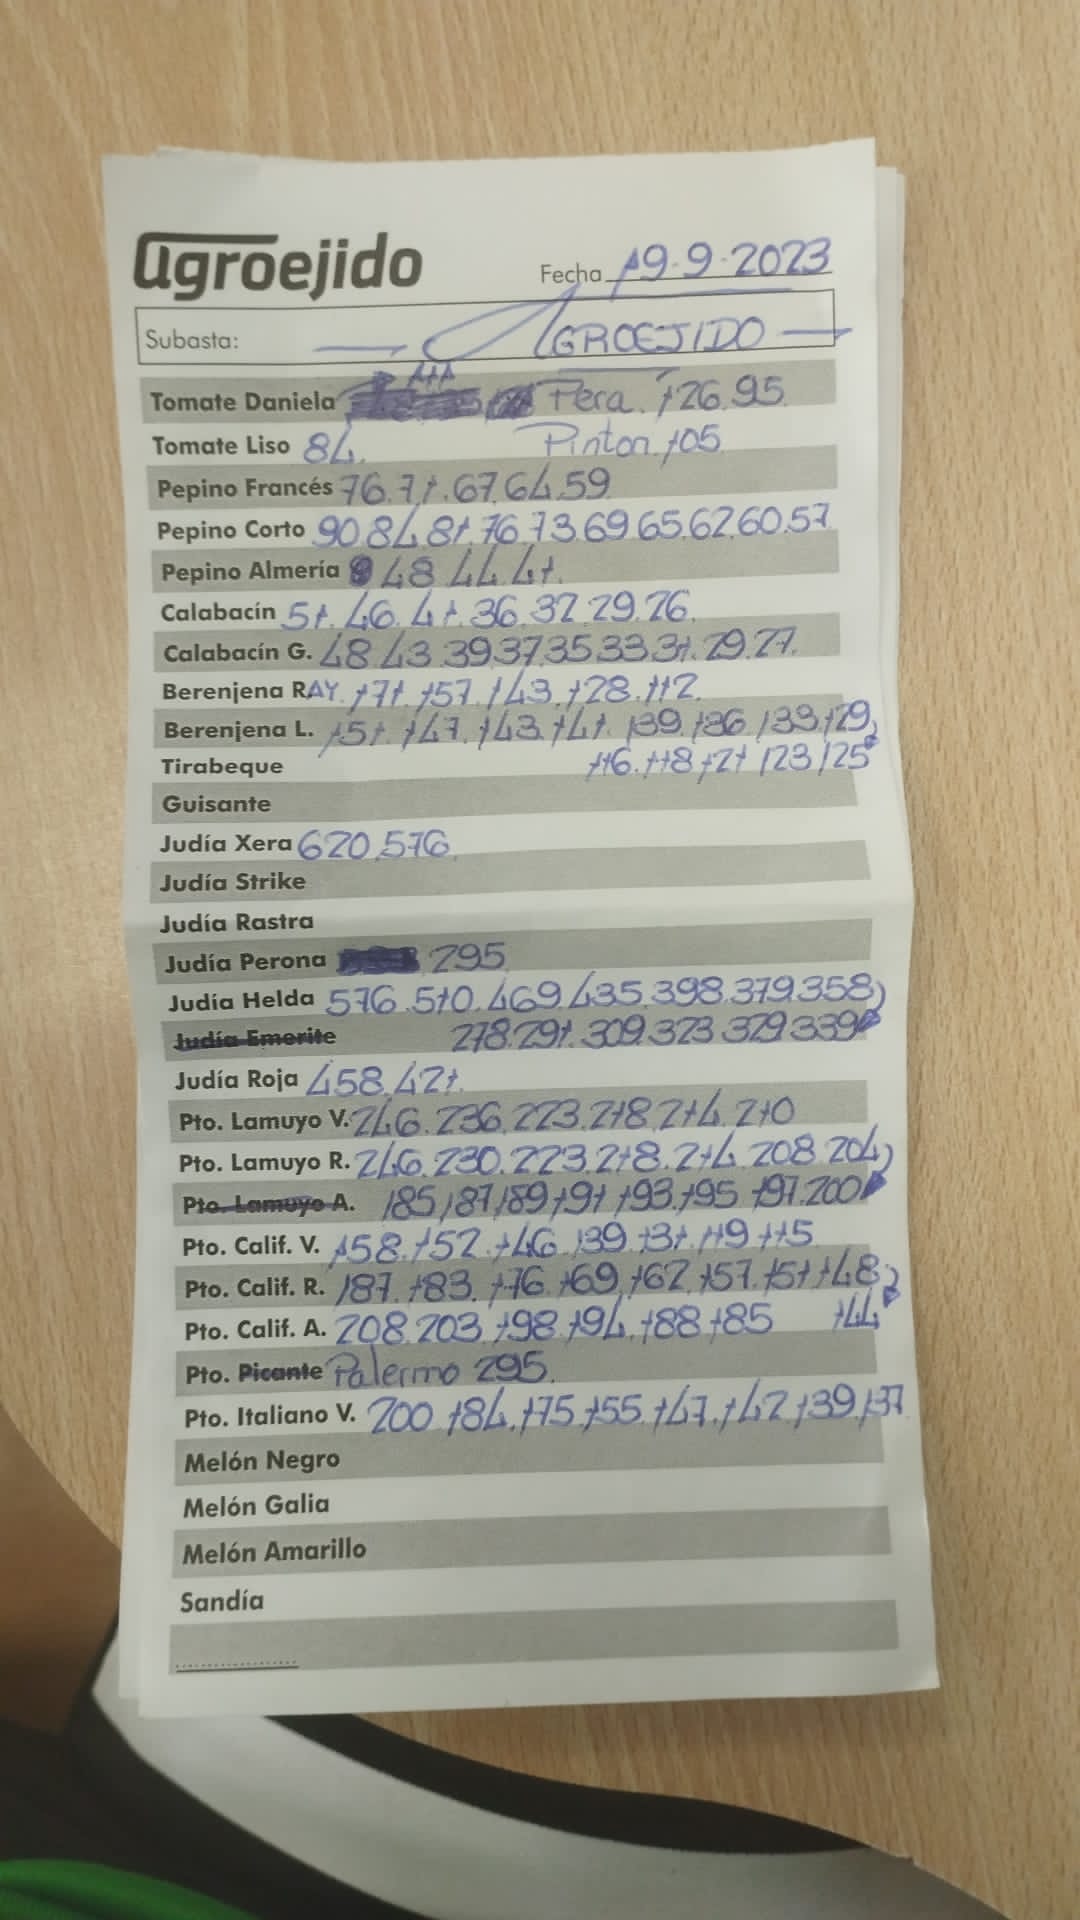 agroejido
Fecha 19-9-2023
Subasta: AGROEJIDO
111
Tomate Daniela Pera. 126.95
Tomate Liso 84. Pinton. 105
Pepino Francés 76.71.67.64.59
Pepino Corto 90.84.81.76.73.69.65.62.60.57
Pepino Almería 48.44.41.
Calabacín 51.46.41.36.32.29.26.
Calabacín G. 48.43.39.37.35.33.31.29.27.
Berenjena RAY. 171.157.143.128.112.
Berenjena L. 151.147.143.141.139.136.133.129
Tirabeque 116.118.121.123.125
Guisante
Judía Xera 620.576.
Judía Strike
Judía Rastra
Judía Perona 295
Judía Helda 576.510.469.435.398.379.358
Judía Emerite 278.291.309.323.329.339
Judía Roja 458.421.
Pto. Lamuyo V. 246.236.223.218.214.210
Pto. Lamuyo R. 246.230.223.218.214.208.204
Pto. Lamuyo A. 185.187.189.191.193.195.197.200
Pto. Calif. V. 158.152.146.139.131.119.115
Pto. Calif. R. 187.183.176.169.162.157.151.148
Pto. Calif. A. 208.203.198.194.188.185 144
Pto. Picante Palermo 295.
Pto. Italiano V. 200.184.175.155.147.142.139.137
Melón Negro
Melón Galia
Melón Amarillo
Sandía